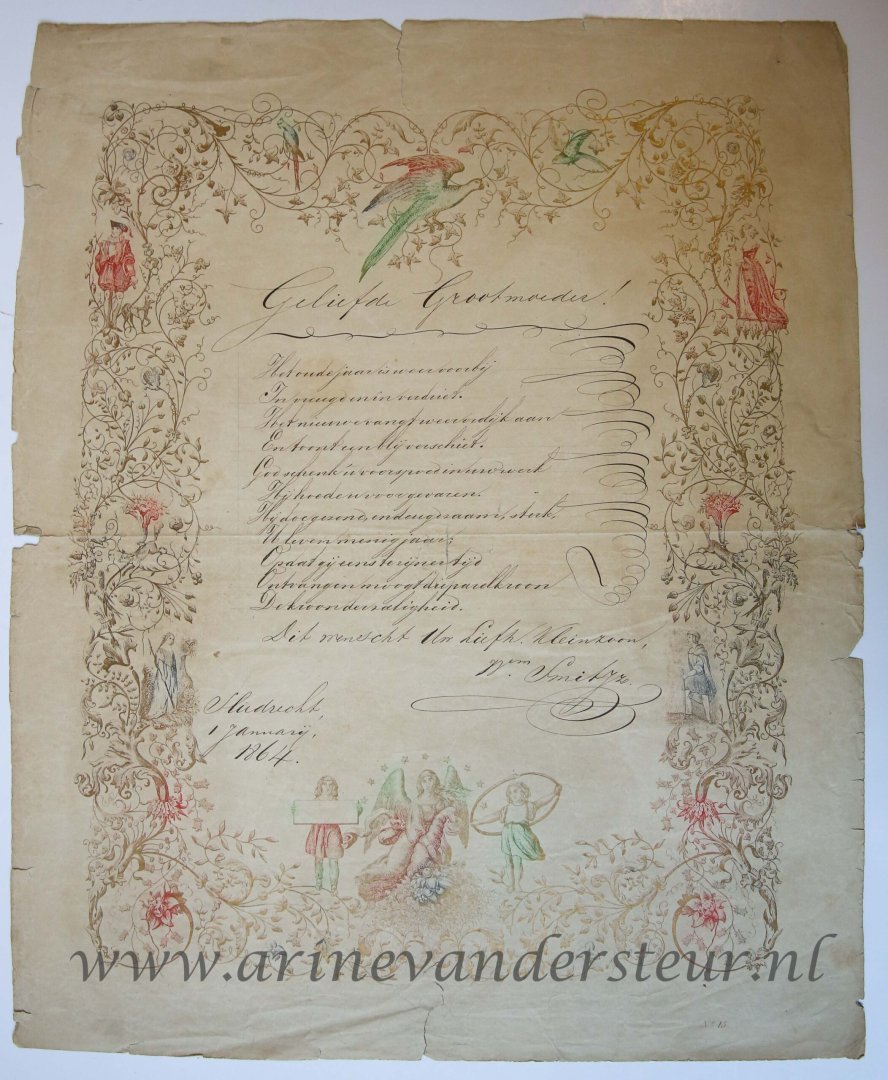 Geliefde Grootmoeder!
Het oude jaar is weer voorbij
In vreugd en in verdriet.
Het nieuwe vangt weer vrolijk aan
En toont een blij verschiet.
God schenk' u voorspoed in uw werk
Hij hoede u voor gevaren.
Hij doe gezond, en deugdzaam, sterk,
U leven menig jaar;
Opdat gij eens ter fijner tijd
Ontvangen moogt die paerelkroon
De kroon der zaligheid.
Dit wenscht Uw Liefh. Kleinzoon,
Smit Jz.
Sliedrecht,
1 Januarij,
1864.
www.arinevandersteur.nl
No 15